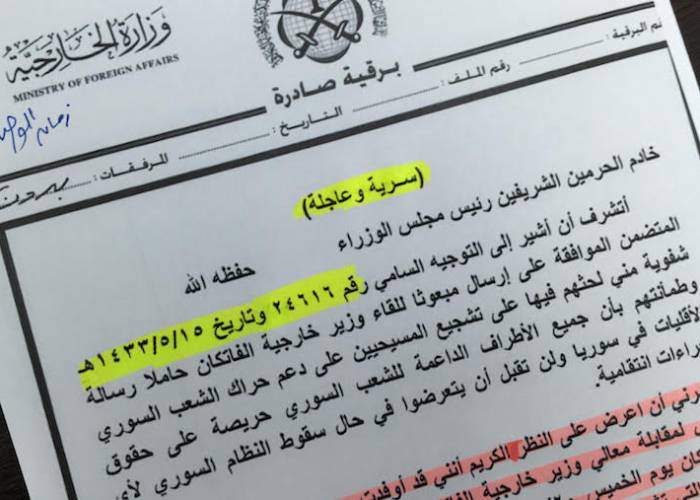 وزارة الخارجية
MINISTRY OF FOREIGN AFFAIRS
برقية صادرة
رقم الملف :
التاريخ :
للرفقات :
بدون
(سرية وعاجلة)
خادم الحرمين الشريفين رئيس مجلس الوزراء
حفظه الله
أتشرف أن أشير إلى التوجيه السامي رقم ٢٤٦١٦ وتاريخ ١٤٣٣/٥/١٥هـ
المتضمن الموافقة على إرسال مبعوثا للقاء وزير خارجية الفاتكان حاملا رسالة
شفوية مني لحثهم فيها على تشجيع المسيحيين على دعم حراك الشعب السوري
وطمأنتهم بأن جميع الأطراف الداعمة للشعب السوري حريصة على حقوق
الأقليات في سوريا ولن تقبل أن يتعرضوا في حال سقوط النظام السوري لأي
انتقامية.
أن اعرض على النظر الكريم أنني قد أوفدت
لمقابلة معالي وزير خارجية
يوم الخميس